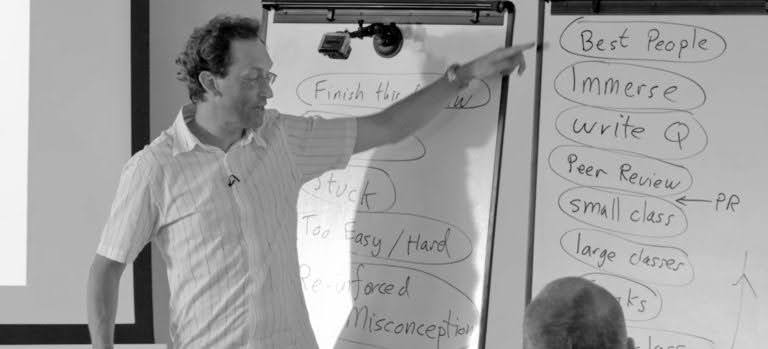 Finish this
Stuck
Too Easy / Hard
Re-inforced
Misconception
Best People
Immerse
write Q
Peer Review
small class
← PR
large classes